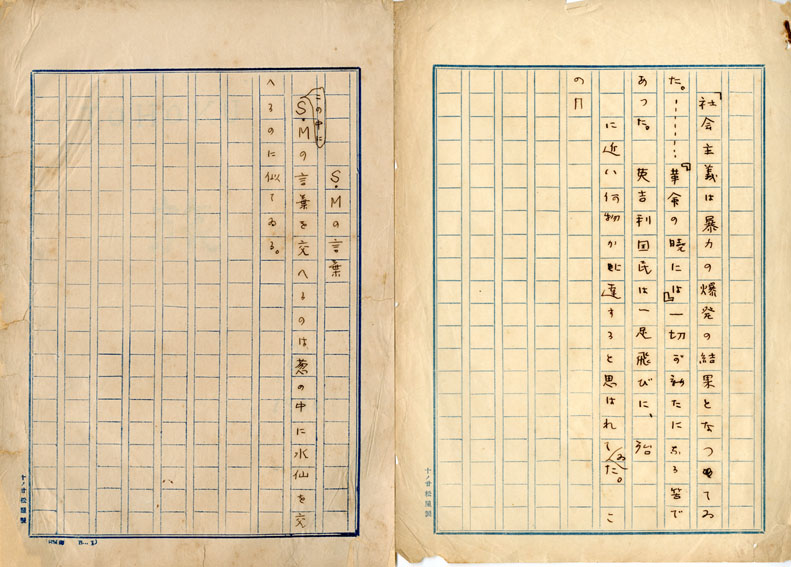 「社会主義は暴力の爆発の結果となつてゐ
た。………『革命の暁には』一切が新たになる筈で
あつた。　英吉利国民は一足飛びに、
に近い何物か達すると思はれてゐた。こ
の
十ノ廿 松屋製
S・Mの言葉
この中に
S・Mの言葉を交へるのは葱の中に水仙を交
へるのに似てゐる。
十ノ廿 松屋製